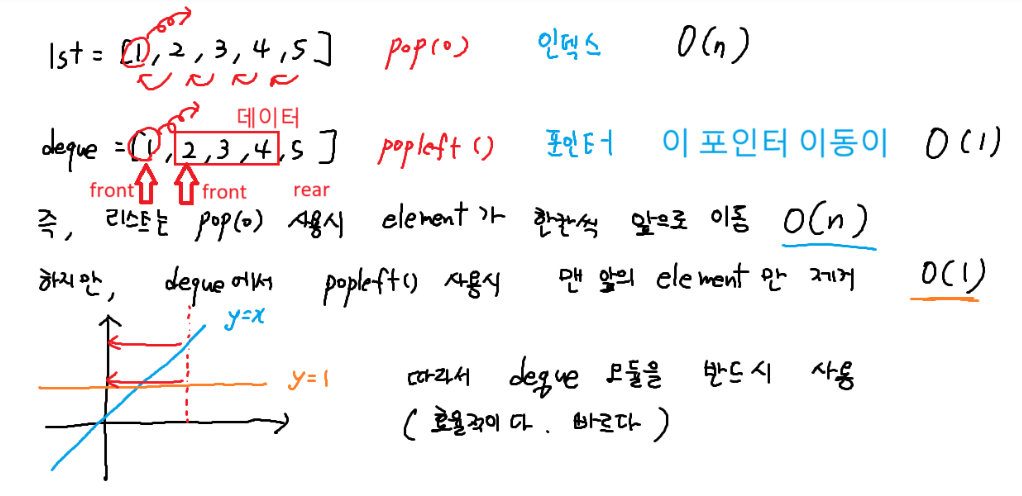 lst = [1, 2, 3, 4, 5] pop(0) 인덱스 O(n)
데이터
deque = [1, 2, 3, 4, 5] popleft() 포인터 이 포인터 이동이 O(1)
front front rear
즉, 리스트는 pop(0) 사용시 element가 한칸씩 앞으로 이동 O(n)
하지만, deque에서 popleft() 사용시 맨 앞의 element만 제거 O(1)
y=x
y=1 따라서 deque 모듈을 반드시 사용
(효율적이다. 빠르다)